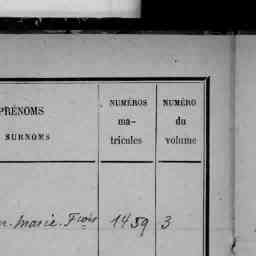 PRÉNOMS
SURNOMS
NUMÉROS
ma-
tricules
NUMÉRO
du
volume
n. Marie. Fçois 1459 3